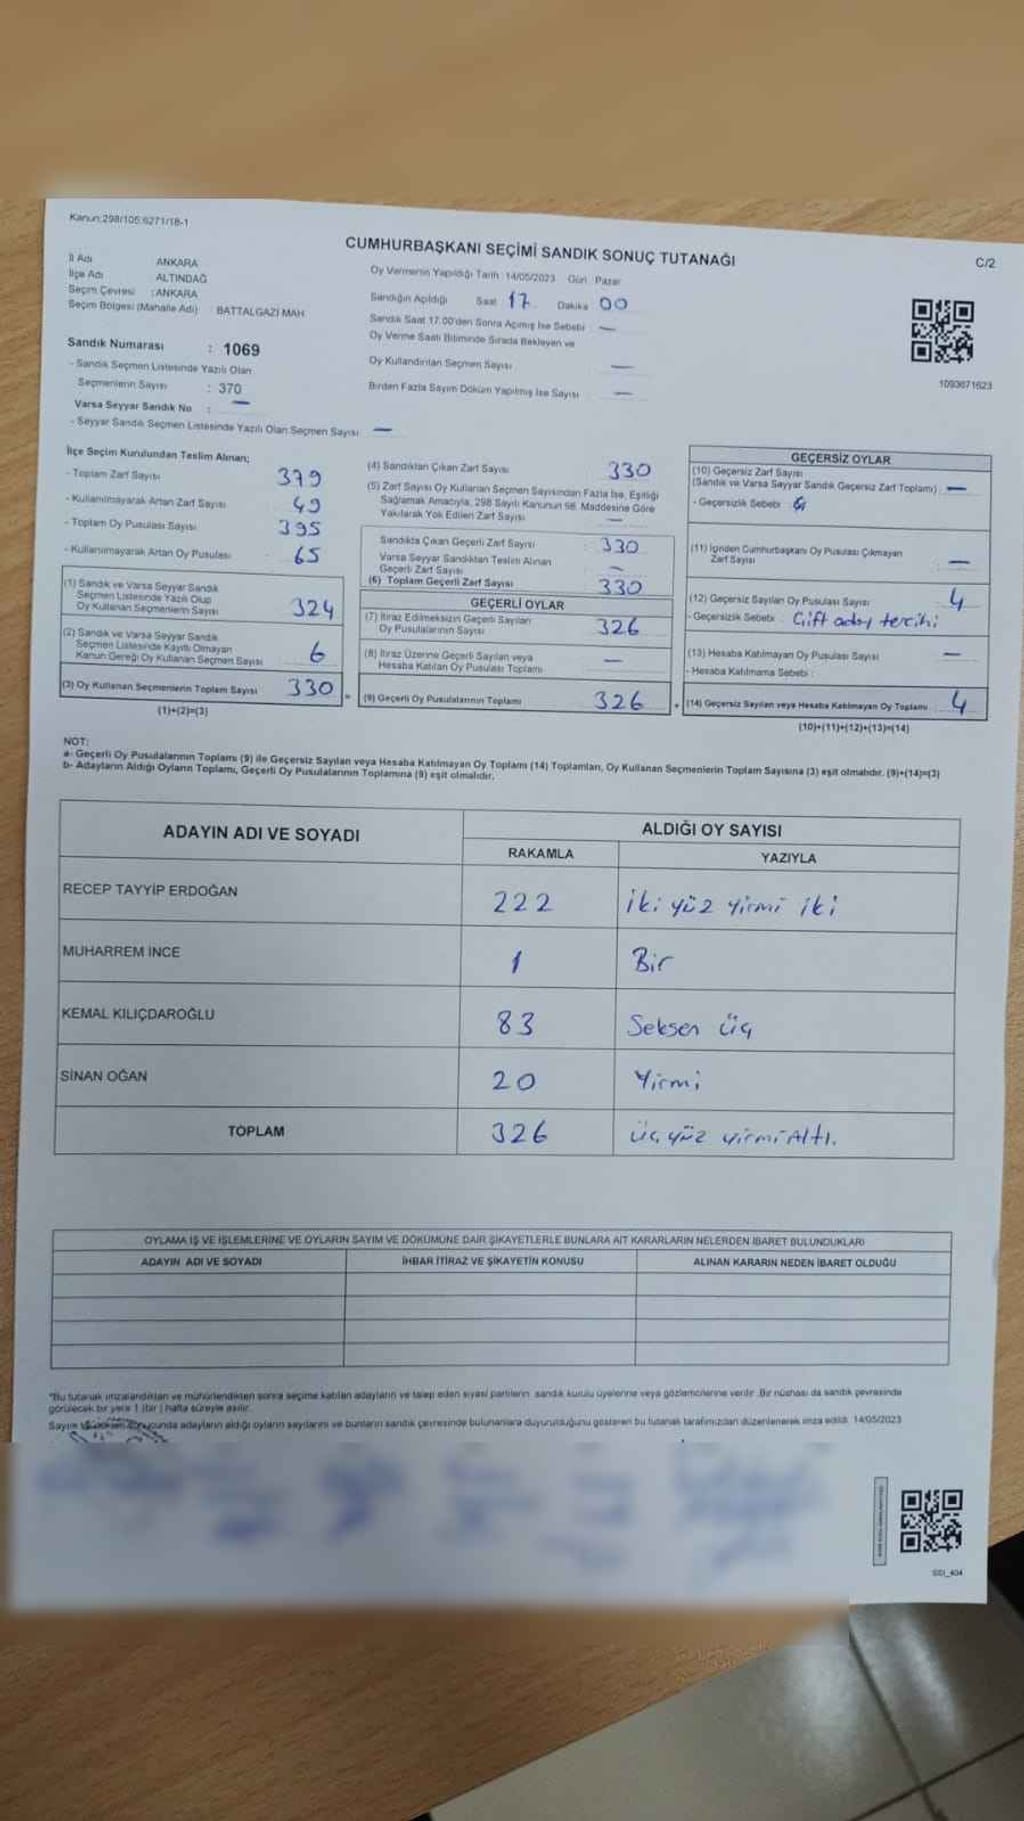 Kanun:298/105:6271/18-1
CUMHURBAŞKANI SEÇİMİ SANDIK SONUÇ TUTANAĞI
C/2
İl Adı ANKARA
İlçe Adı ALTINDAĞ
Seçim Çevresi : ANKARA
Seçim Bölgesi (Mahalle Adı) : BATTALGAZİ MAH.
Sandık Numarası : 1069
- Sandık Seçmen Listesinde Yazılı Olan
Seçmenlerin Sayısı : 370
Varsa Seyyar Sandık No : —
- Seyyar Sandık Seçmen Listesinde Yazılı Olan Seçmen Sayısı —
Oy Vermenin Yapıldığı Tarih : 14/05/2023 Gün : Pazar
Sandığın Açıldığı Saat 17 Dakika 00
Sandık Saat 17.00'den Sonra Açılmış İse Sebebi —
Oy Verme Saati Bitiminde Sırada Bekleyen ve
Oy Kullandırılan Seçmen Sayısı —
Birden Fazla Sayım Döküm Yapılmış İse Sayısı —
1093671623
İlçe Seçim Kurulundan Teslim Alınan;
- Toplam Zarf Sayısı 379
- Kullanılmayarak Artan Zarf Sayısı 49
- Toplam Oy Pusulası Sayısı 395
- Kullanılmayarak Artan Oy Pusulası 65
(1) Sandık ve Varsa Seyyar Sandık
Seçmen Listesinde Yazılı Olup
Oy Kullanan Seçmenlerin Sayısı 324
(2) Sandık ve Varsa Seyyar Sandık
Seçmen Listesinde Kayıtlı Olmayan
Kanun Gereği Oy Kullanan Seçmen Sayısı 6
(3) Oy Kullanan Seçmenlerin Toplam Sayısı 330
(1)+(2)=(3)
=
(4) Sandıktan Çıkan Zarf Sayısı 330
(5) Zarf Sayısı Oy Kullanan Seçmen Sayısından Fazla İse, Eşitliği
Sağlamak Amacıyla, 298 Sayılı Kanunun 98. Maddesine Göre
Yakılarak Yok Edilen Zarf Sayısı —
Sandıkta Çıkan Geçerli Zarf Sayısı : 330
Varsa Seyyar Sandıktan Teslim Alınan
Geçerli Zarf Sayısı : —
(6) Toplam Geçerli Zarf Sayısı 330
GEÇERLİ OYLAR
(7) İtiraz Edilmeksizin Geçerli Sayılan
Oy Pusulalarının Sayısı 326
(8) İtiraz Üzerine Geçerli Sayılan veya
Hesaba Katılan Oy Pusulası Toplamı —
(9) Geçerli Oy Pusulalarının Toplamı 326
+
GEÇERSİZ OYLAR
(10) Geçersiz Zarf Sayısı
(Sandık ve Varsa Seyyar Sandık Geçersiz Zarf Toplamı) —
- Geçersizlik Sebebi :
(11) İçinden Cumhurbaşkanı Oy Pusulası Çıkmayan
Zarf Sayısı —
(12) Geçersiz Sayılan Oy Pusulası Sayısı 4
- Geçersizlik Sebebi : Çift aday tercihi
(13) Hesaba Katılmayan Oy Pusulası Sayısı —
- Hesaba Katılmama Sebebi :
(14) Geçersiz Sayılan veya Hesaba Katılmayan Oy Toplamı 4
(10)+(11)+(12)+(13)=(14)
NOT:
a- Geçerli Oy Pusulalarının Toplamı (9) ile Geçersiz Sayılan veya Hesaba Katılmayan Oy Toplamı (14) Toplamları, Oy Kullanan Seçmenlerin Toplam Sayısına (3) eşit olmalıdır. (9)+(14)=(3)
b- Adayların Aldığı Oyların Toplamı, Geçerli Oy Pusulalarının Toplamına (9) eşit olmalıdır.
ADAYIN ADI VE SOYADI ALDIĞI OY SAYISI
RAKAMLA YAZIYLA
RECEP TAYYİP ERDOĞAN 222 iki yüz yirmi iki
MUHARREM İNCE 1 Bir
KEMAL KILIÇDAROĞLU 83 Seksen üç
SİNAN OĞAN 20 Yirmi
TOPLAM 326 üç yüz yirmi Altı.
OYLAMA İŞ VE İŞLEMLERİNE VE OYLARIN SAYIM VE DÖKÜMÜNE DAİR ŞİKAYETLERLE BUNLARA AİT KARARLARIN NELERDEN İBARET BULUNDUKLARI
ADAYIN ADI VE SOYADI İHBAR İTİRAZ VE ŞİKAYETİN KONUSU ALINAN KARARIN NEDEN İBARET OLDUĞU
"Bu tutanak imzalandıktan ve mühürlendikten sonra seçime katılan adayların ve talep eden siyasi partilerin sandık kurulu üyelerine veya gözlemcilerine verilir. Bir nüshası da sandık çevresinde
görülecek bir yere 1 (bir) hafta süreyle asılır.
Sayım sonucunda adayların aldığı oyların sayılarını ve bunların sandık çevresinde bulunanlara duyurulduğunu gösteren bu tutanak tarafımızdan düzenlenerek imza edildi. 14/05/2023